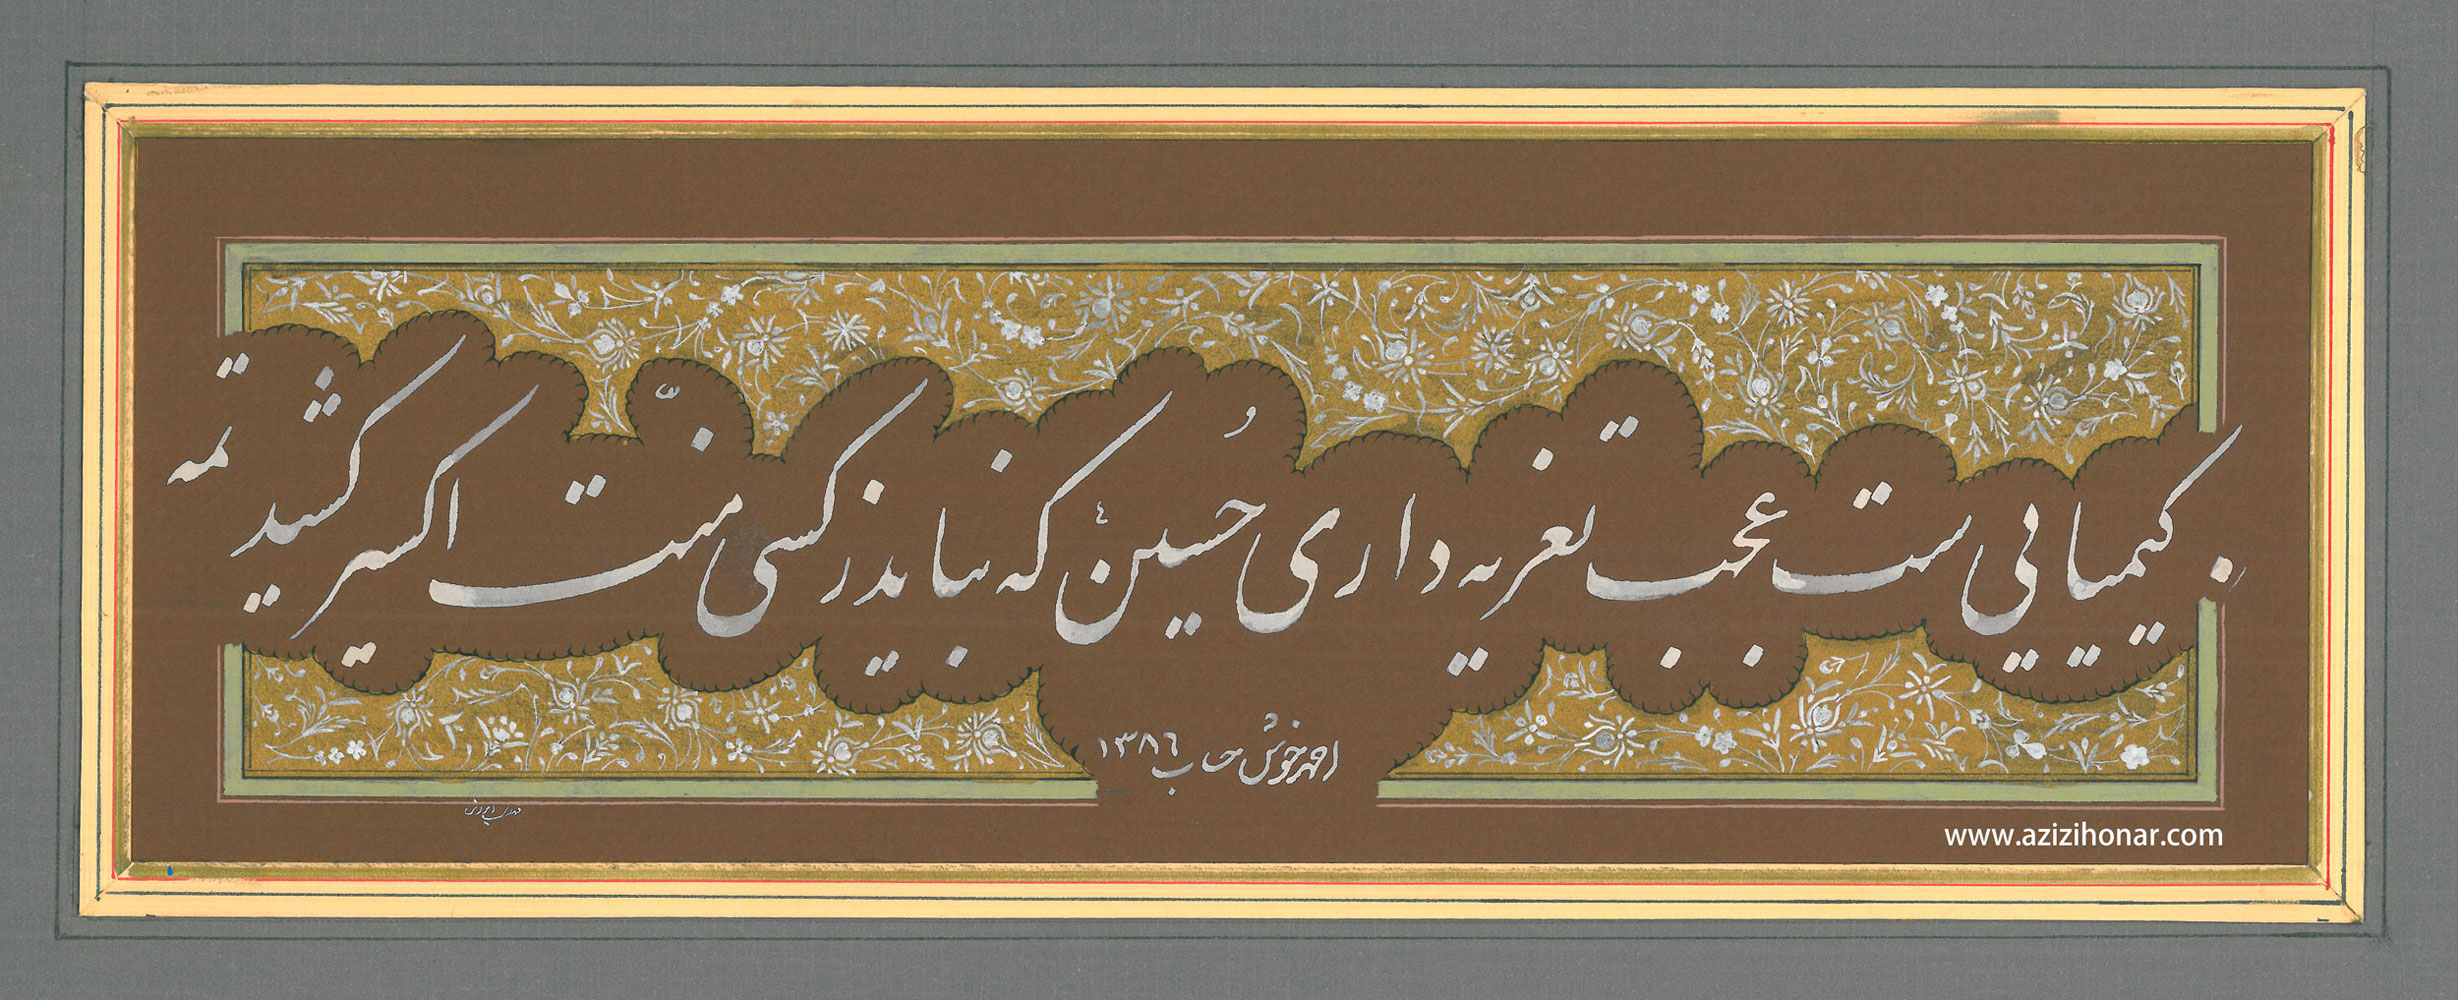 کیمیایی ست عجب تعزیه داری حُسین
که نباید ز کسی منّت اکسیر کشید
تمه
احمد خوش حساب ۱۳۸۶
www.azizihonar.com